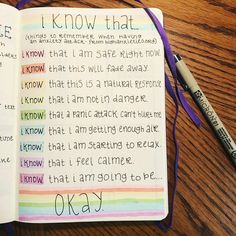 I know that...
(things to remember when having
an anxiety attack -
I know that I am safe right now
I know that this will fade away.
I know that this is a natural response
I know that I am not in danger.
I know that a panic attack can't hurt me
I know that I am getting enough air.
I know that I am starting to relax.
I know that I feel calmer.
I know that I am going to be...
OKAY.